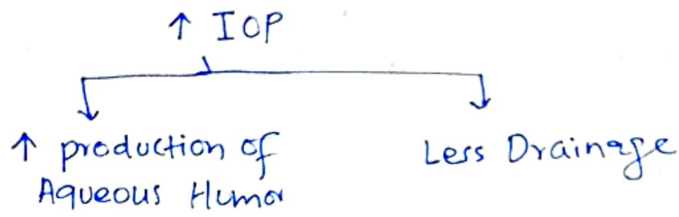 ↑ IOP
↑ production of
Aqueous Humor
Less Drainage